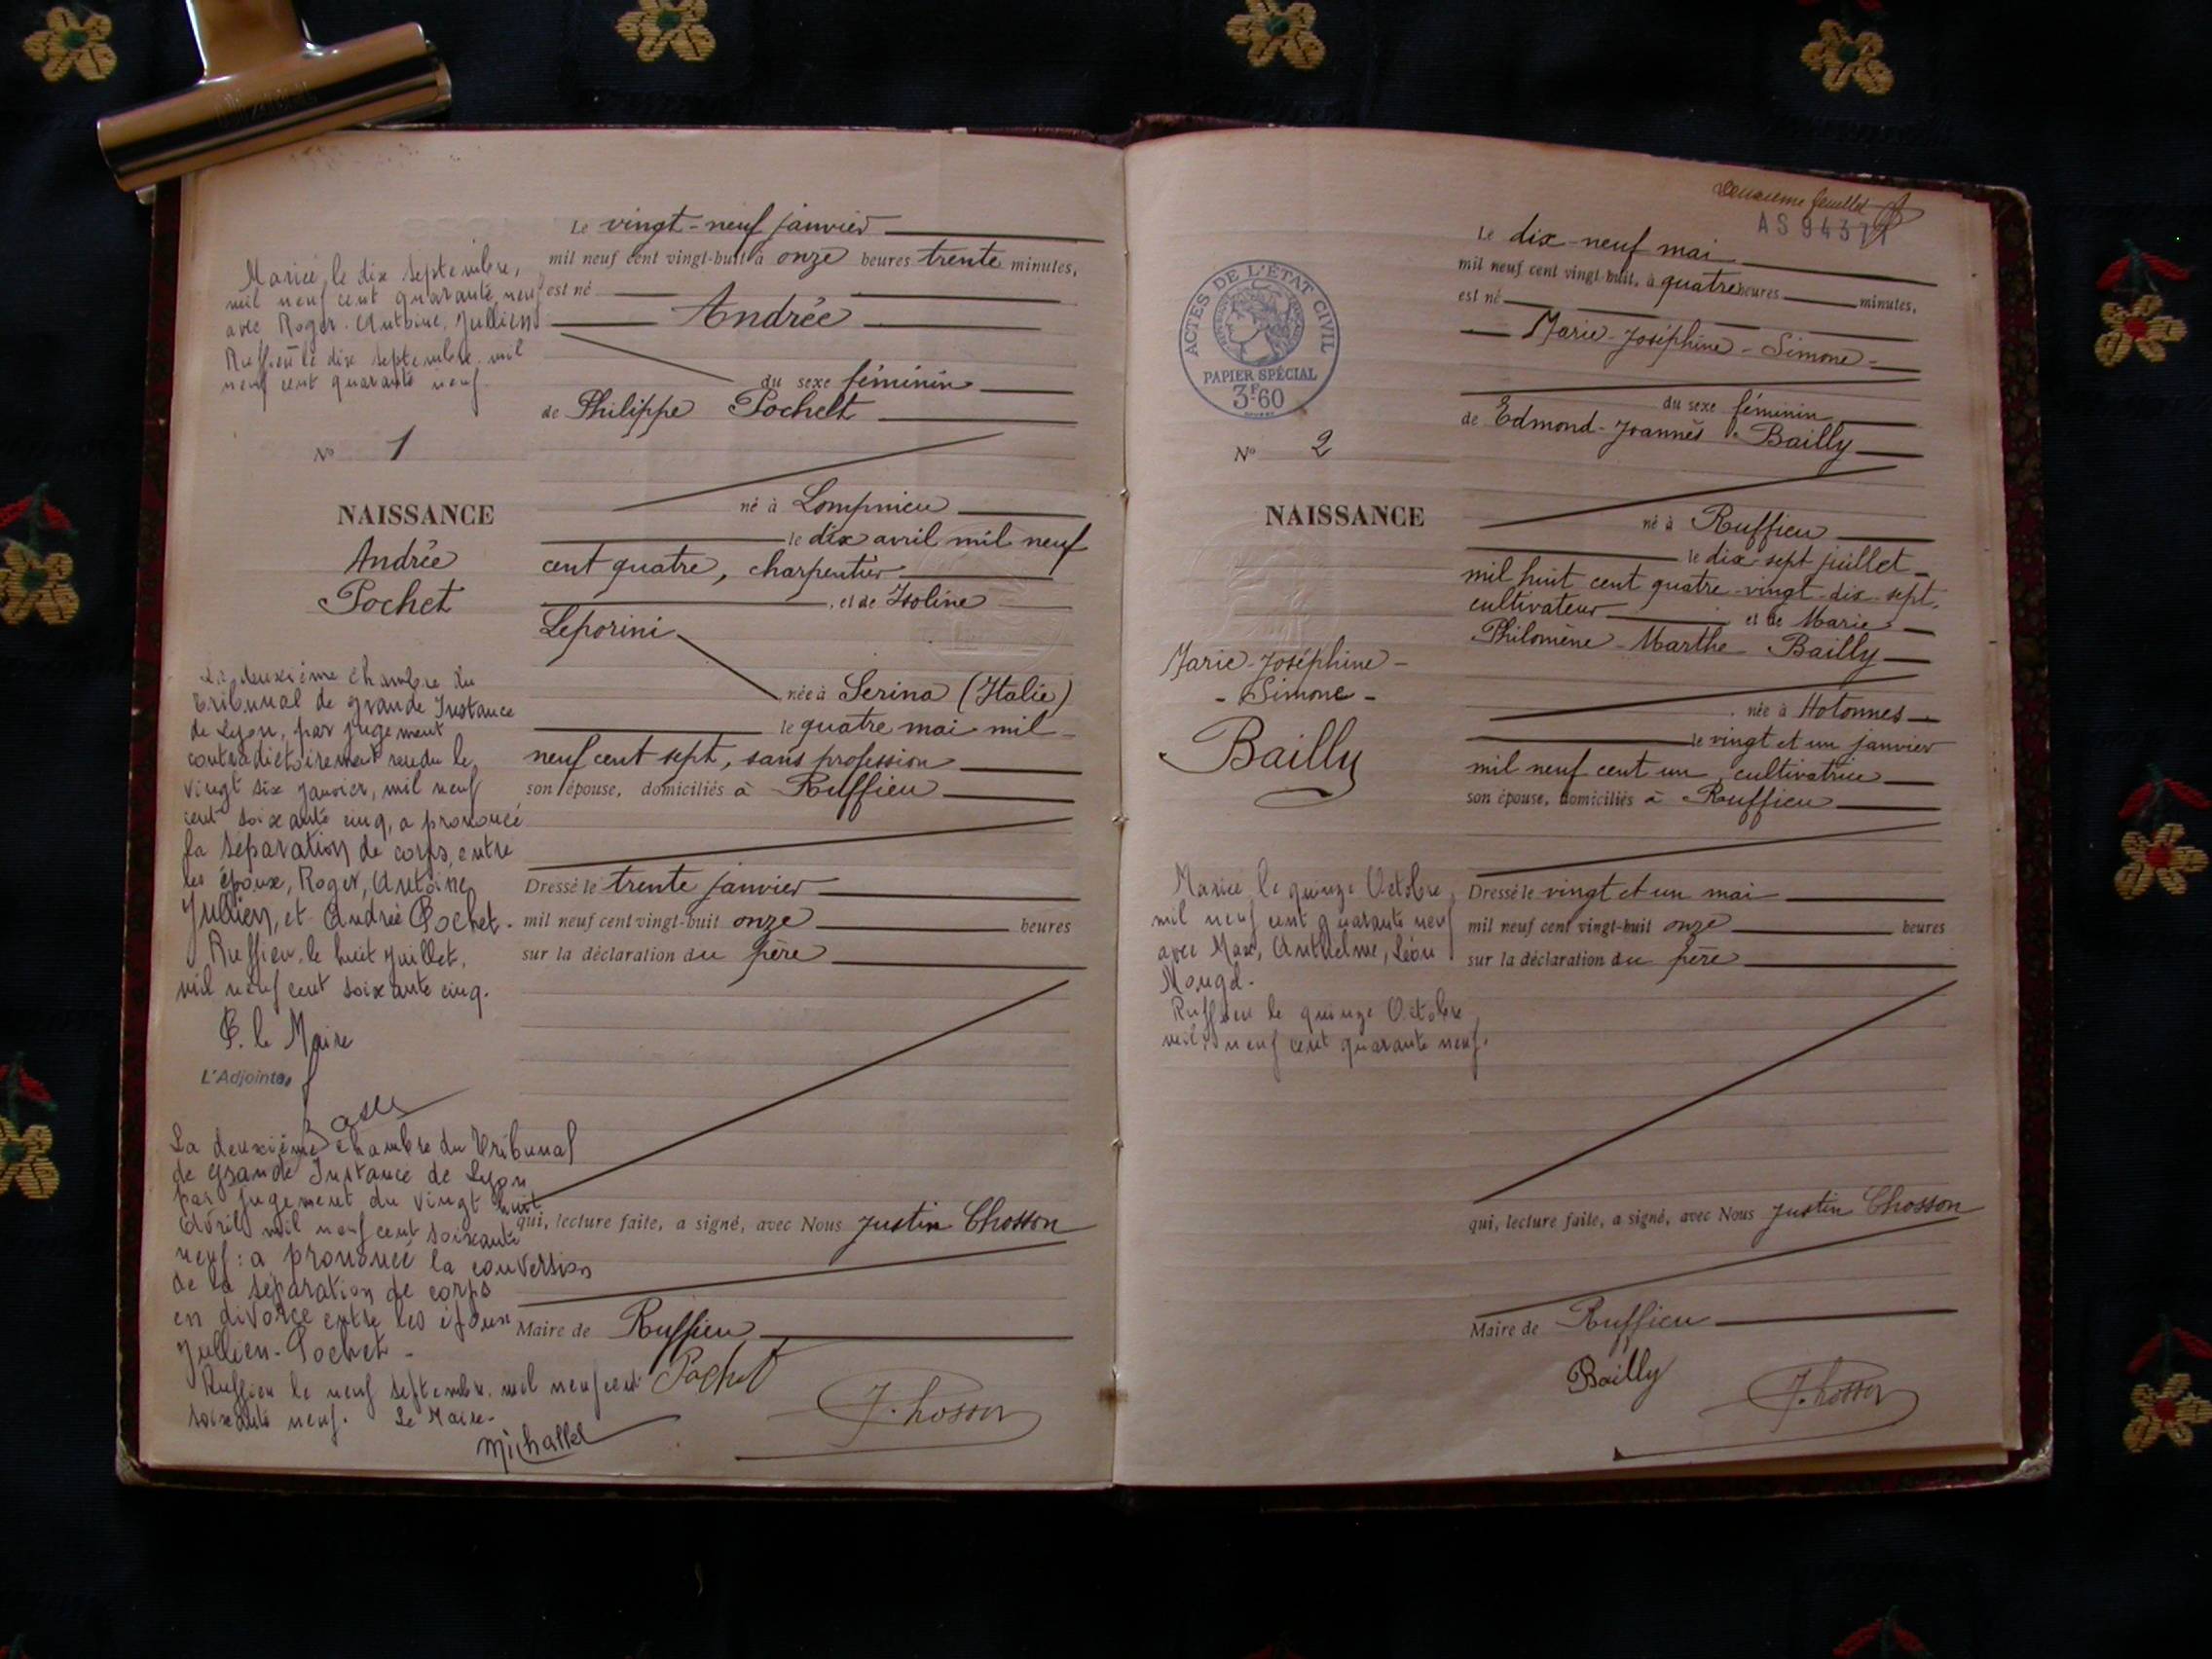 Le vingt-neuf janvier
mil neuf cent vingt-huit à onze heures trente minutes,
est né
Andrée
du sexe féminin
de Philippe Pochet
né à Lompnieu
le dix avril mil neuf
cent quatre, charpentier
, et de Isoline
Leporini
née à Serina (Italie)
le quatre mai mil
neuf cent sept, sans profession
son épouse, domiciliés à Ruffieu
Dressé le trente janvier
mil neuf cent vingt-huit onze heures
sur la déclaration du père
qui, lecture faite, a signé, avec Nous Justin Chosson
Maire de Ruffieu
Pochet
J. Chosson
Mariée le dix septembre,
mil neuf cent quarante neuf
avec Roger. Antoine. Jullien.
Ruffieu le dix septembre mil
neuf cent quarante neuf.
N° 1
NAISSANCE
Andrée
Pochet
La deuxième chambre du
tribunal de grande Instance
de Lyon, par jugement
contradictoirement rendu le
vingt six janvier, mil neuf
cent soixante cinq, a prononcé
la séparation de corps, entre
les époux, Roger, Antoine,
Jullien, et Andrée Pochet.
Ruffieu, le huit Juillet,
mil neuf cent soixante cinq.
P. le Maire
L'Adjoint
La deuxième chambre du Tribunal
de grande Instance de Lyon
par jugement du vingt huit
Avril mil neuf cent soixante
neuf: a prononcé la conversion
de la séparation de corps
en divorce entre les époux
Jullien-Pochet-
Ruffieu le neuf septembre. mil neuf cent
soixante neuf. Le Maire-
Michallet
Deuxième feuillet
AS 94377
Le dix-neuf mai
mil neuf cent vingt-huit, à quatre heures minutes,
est né
Marie-Joséphine-Simone-
du sexe féminin
de Edmond-Joannès Bailly
né à Ruffieu
le dix-sept juillet
mil huit cent quatre-vingt-dix-sept,
cultivateur et de Marie
Philomène-Marthe Bailly
née à Hotonnes
le vingt et un janvier
mil neuf cent un, cultivatrice
son épouse, domiciliés à Ruffieu
Dressé le vingt et un mai
mil neuf cent vingt-huit onze heures
sur la déclaration du père
qui, lecture faite, a signé, avec Nous Justin Chosson
Maire de Ruffieu
Bailly
J. Chosson
ACTES DE L'ÉTAT CIVIL
PAPIER SPÉCIAL
3F.60
N° 2
NAISSANCE
Marie-Joséphine-
-Simone-
Bailly
Mariée le quinze Octobre,
mil neuf cent quarante neuf
avec Max, Anthelme, Léon
Ruffieu le quinze Octobre,
mil neuf cent quarante neuf.